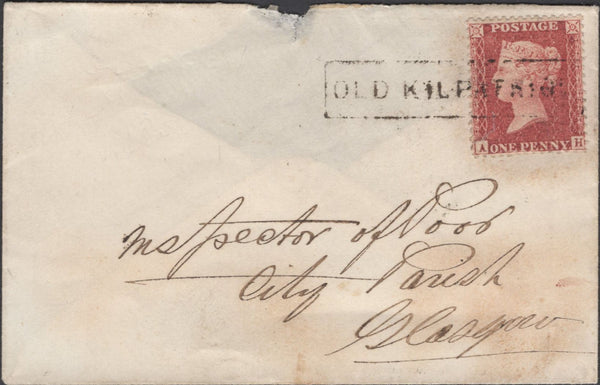 POSTAGE
OLD KILPATRICK
A ONE PENNY H
Inspector of Poor
City Parish
Glasgow